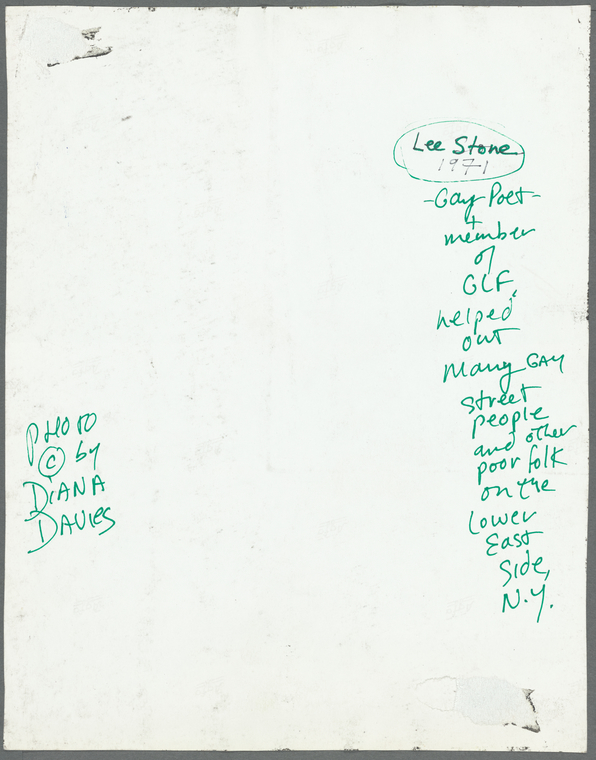 Lee Stone
1971
-Gay Poet-
+
member
of
GLF,
helped
out
Many GAY
street
people
and other
poor folk
on the
Lower
East
Side,
N.Y.
PHOTO
© by
DiANA
DAVIES